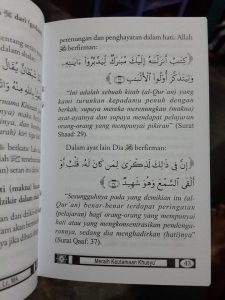 perenungan dan penghayatan dalam hati. Allah
ﷻ berfirman:
﴿كِتَٰبٌ أَنزَلْنَٰهُ إِلَيْكَ مُبَٰرَكٌ لِّيَدَّبَّرُوٓا۟ ءَايَٰتِهِۦ
وَلِيَتَذَكَّرَ أُو۟لُوا۟ ٱلْأَلْبَٰبِ﴾
"Ini adalah sebuah kitab (al-Qur'an) yang
kami turunkan kepadamu penuh dengan
berkah, supaya mereka merenungkan (makna)
ayat-ayatnya dan supaya mendapat pelajaran
orang-orang yang mempunyai pikiran" (Surat
Shaad: 29).
Dalam ayat lain Dia ﷻ berfirman:
﴿إِنَّ فِى ذَٰلِكَ لَذِكْرَىٰ لِمَن كَانَ لَهُۥ قَلْبٌ أَوْ
أَلْقَى ٱلسَّمْعَ وَهُوَ شَهِيدٌ﴾
"Sesungguhnya pada yang demikian itu (al-
Qur'an) benar-benar terdapat peringatan
(pelajaran) bagi orang-orang yang mempunyai
hati atau yang mengkonsentrasikan pendenga-
rannya, sedang dia menghadirkan (hati)nya"
(Surat Qaaf: 37).
Meraih Keutamaan Khusyu